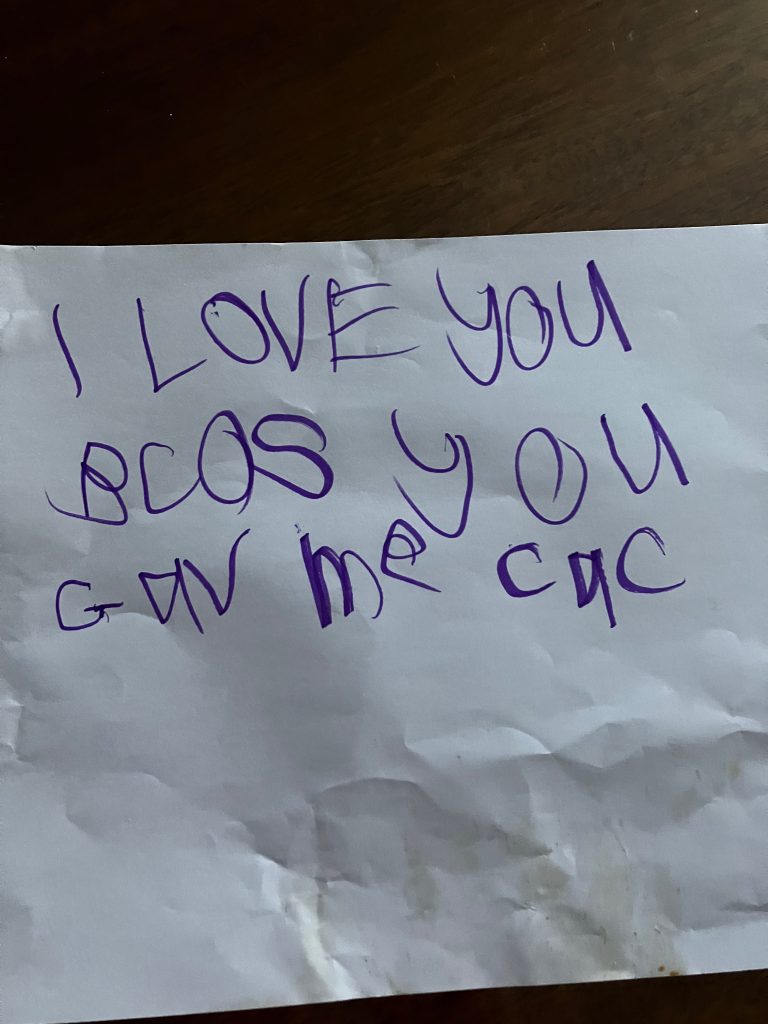 I LOVE YOU
BCOS YOU
GAV me cac